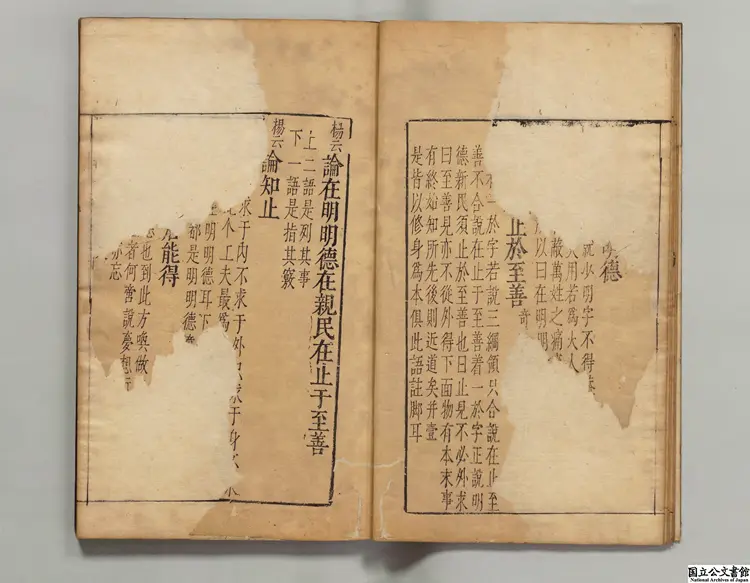 德
就少明字不得
大用若為大人
蔽萬姓之痛
以曰在明明
止於至善 奇
於字若說三綱領只合說在止至
善不合說在止于至善着一於字正說明
德新民須止於至善也曰止見不必外求
曰至善見亦不從外得下面物有本末事
有終始知所先後則近道矣并壹
是皆以修身為本俱此語註脚耳
楊云論在明明德在親民在止于至善
上二語是列其事
下一語是指其竅
楊云論知止
求于内不求于外 求于身
个工夫最為
明明德耳下
都是明明德
能得
也到此方喚做
者何嘗說憂想
亦忘
国立公文書館
National Archives of Japan